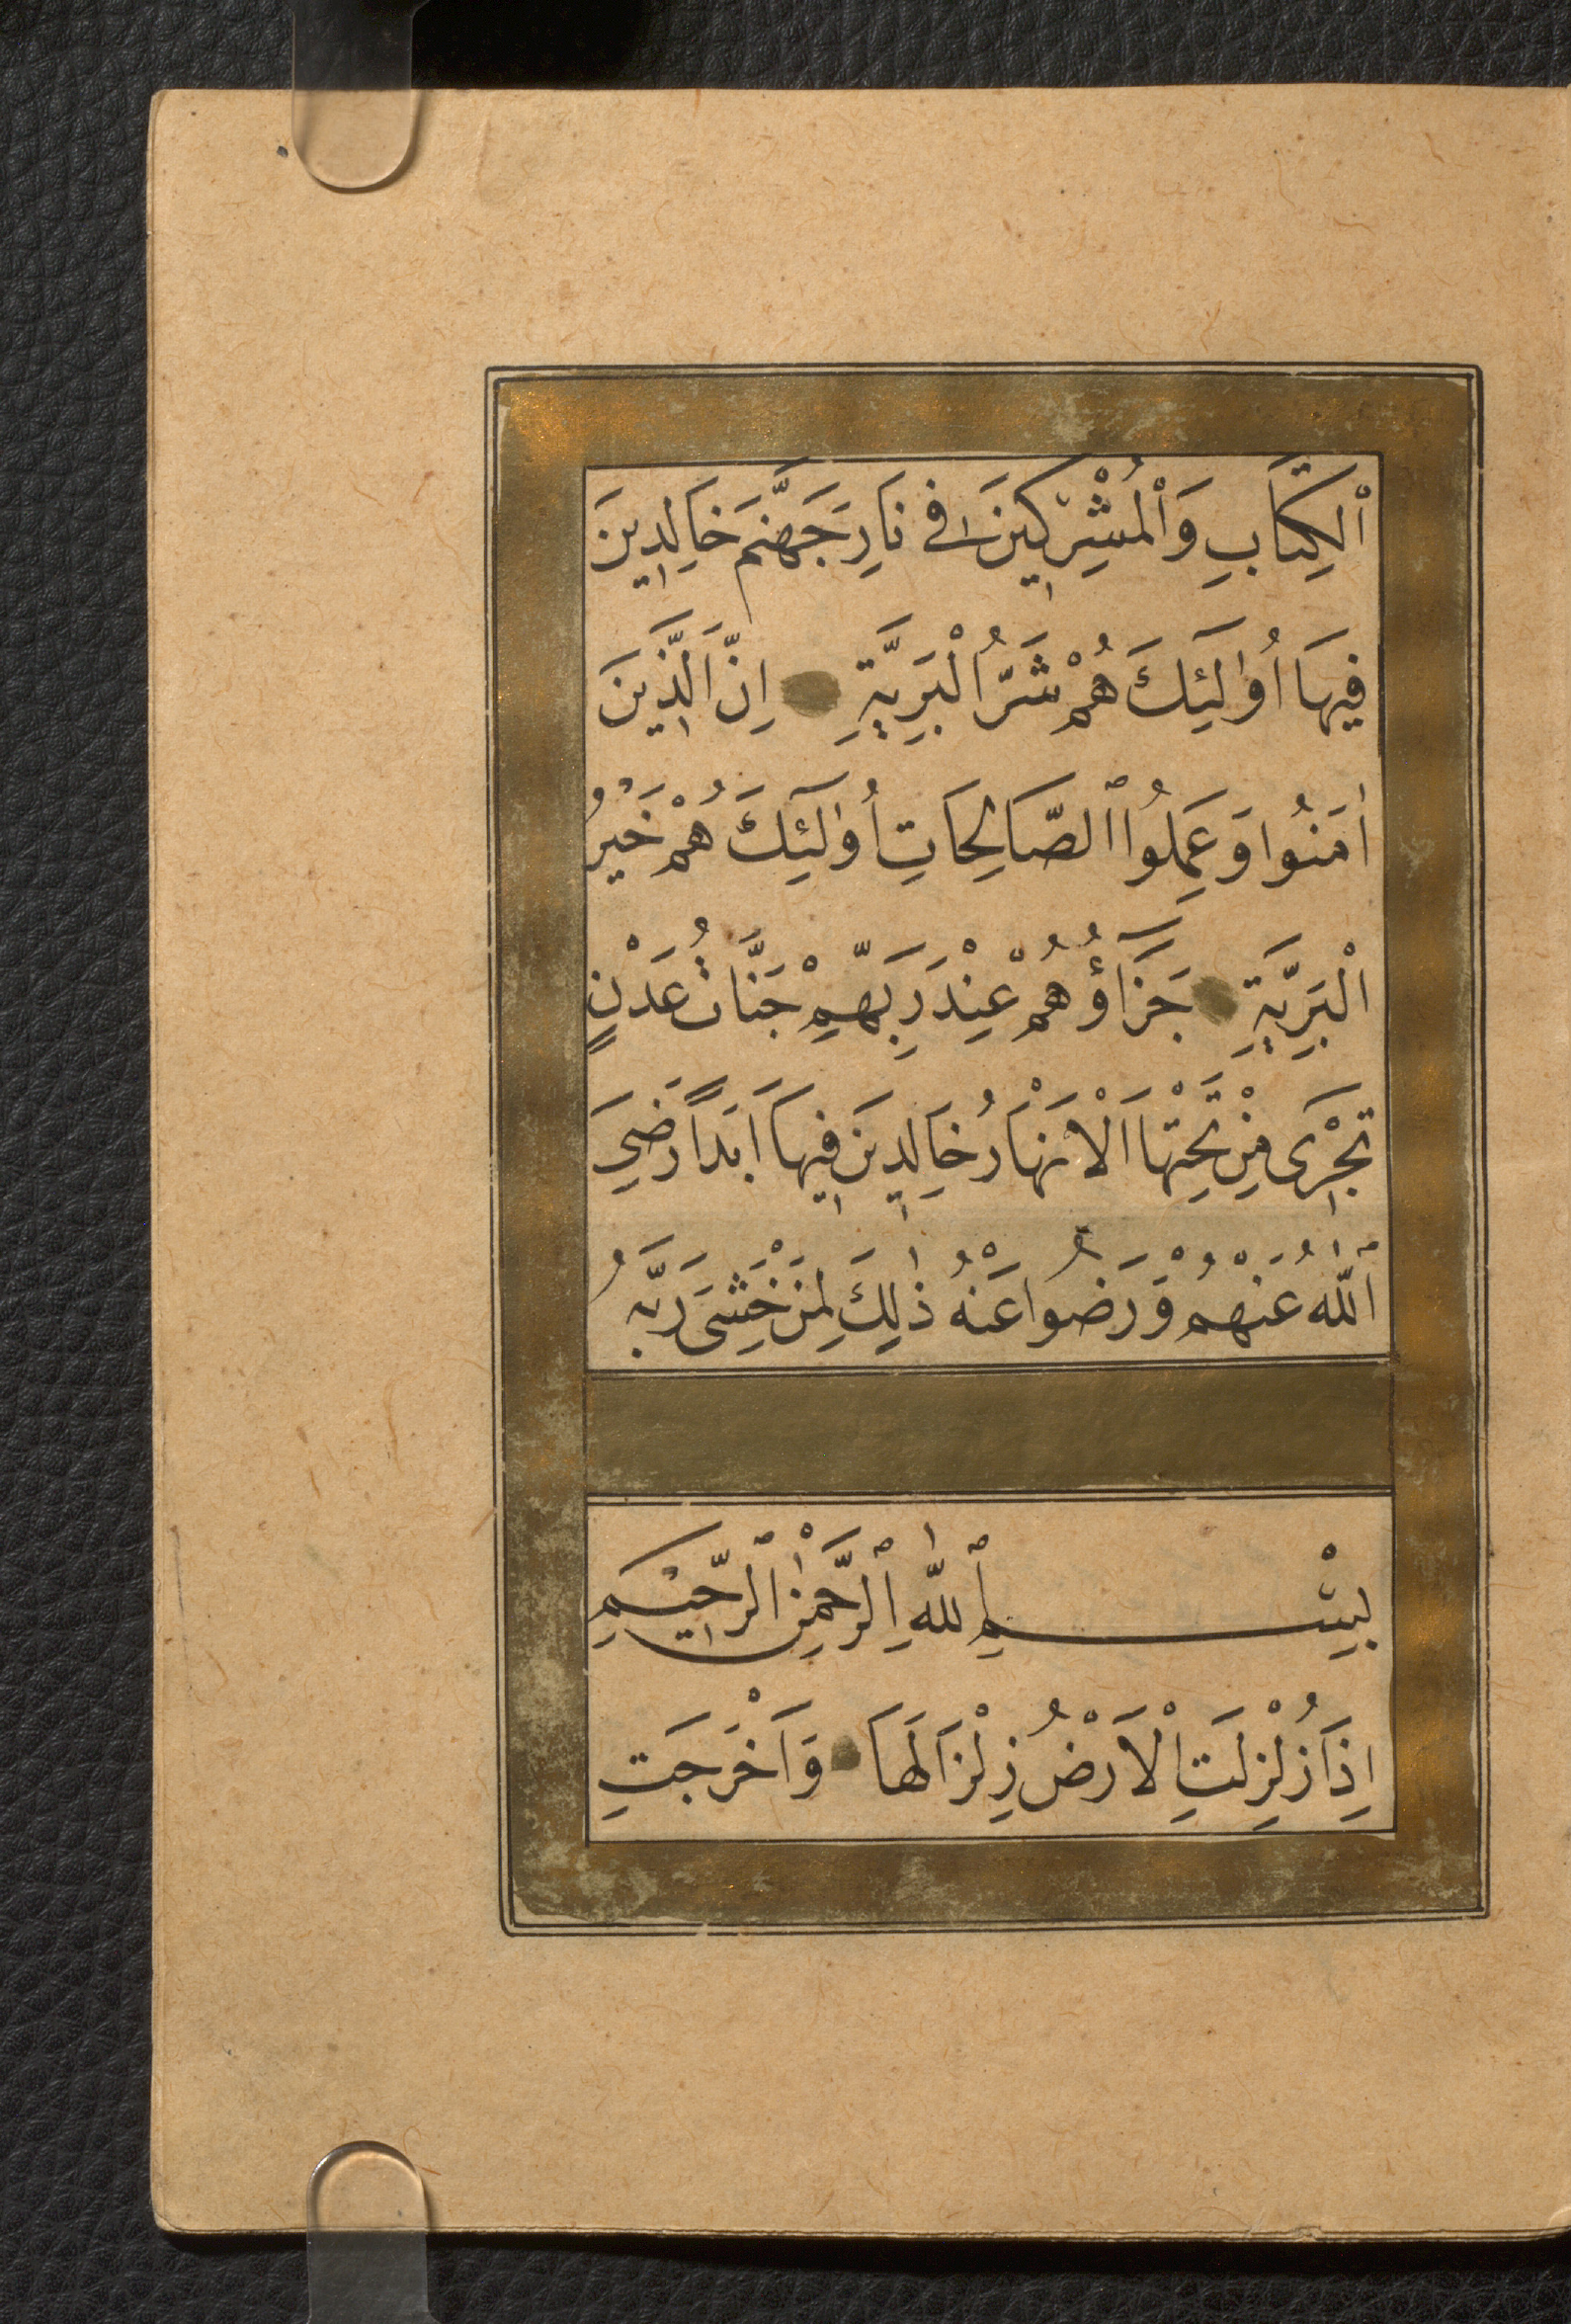 ٱلْكِتَابِ وَٱلْمُشْرِكِينَ فِى نَارِ جَهَنَّمَ خَالِدِينَ
فِيهَا اُولَٰئِكَ هُمْ شَرُّ الْبَرِيَّةِ اِنَّ الَّذِينَ
اٰمَنُوا وَعَمِلُوا ٱلصَّالِحَاتِ اُولَٰئِكَ هُمْ خَيْرُ
الْبَرِيَّةِ جَزَآؤُهُمْ عِنْدَ رَبِّهِمْ جَنَّاتُ عَدْنٍ
تَجْرِى مِنْ تَحْتِهَا الْاَنْهَارُ خَالِدِينَ فِيهَا اَبَدًا رَضِىَ
ٱللّٰهُ عَنْهُمْ وَرَضُوا عَنْهُ ذٰلِكَ لِمَنْ خَشِىَ رَبَّهُ
بِسْمِ ٱللّٰهِ ٱلرَّحْمٰنِ ٱلرَّحِيمِ
اِذَا زُلْزِلَتِ الْاَرْضُ زِلْزَالَهَا وَاَخْرَجَتِ